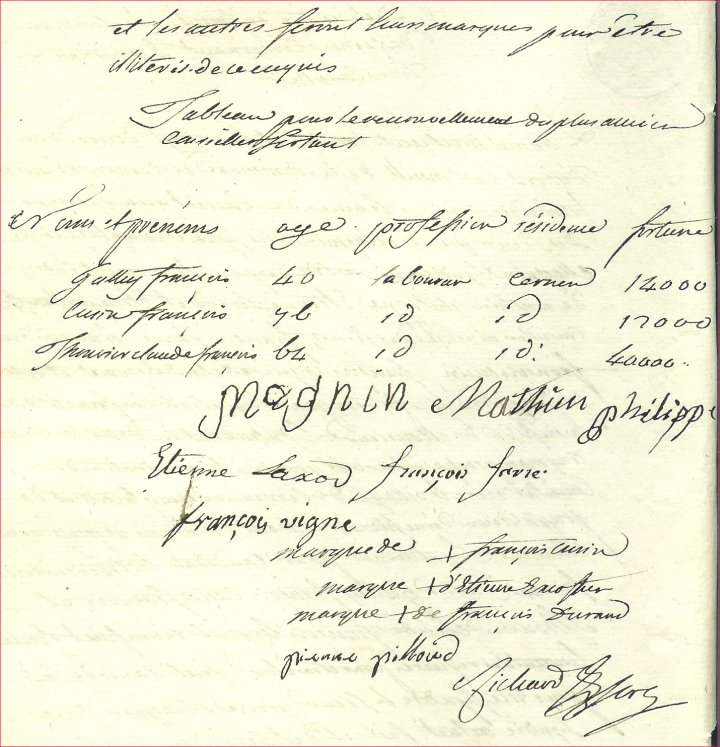 et les autres feront leurs marques pour être
illiterés de ce enquis
Tableau pour le renouvellement du plus ancien
Conseiller sortant
Noms et prénoms age profession résidence fortune
françois 40 laboureur cernex 14000
Cusin françois id id 12000
Thouvier claude françois 64 id id. 40000.
Magnin Mathieu philippe
Etienne Saxod françois favre
françois vigne
marque de + françois Cusin
marque + d'Etienne
marque + de françois Durand
pierre
Richard